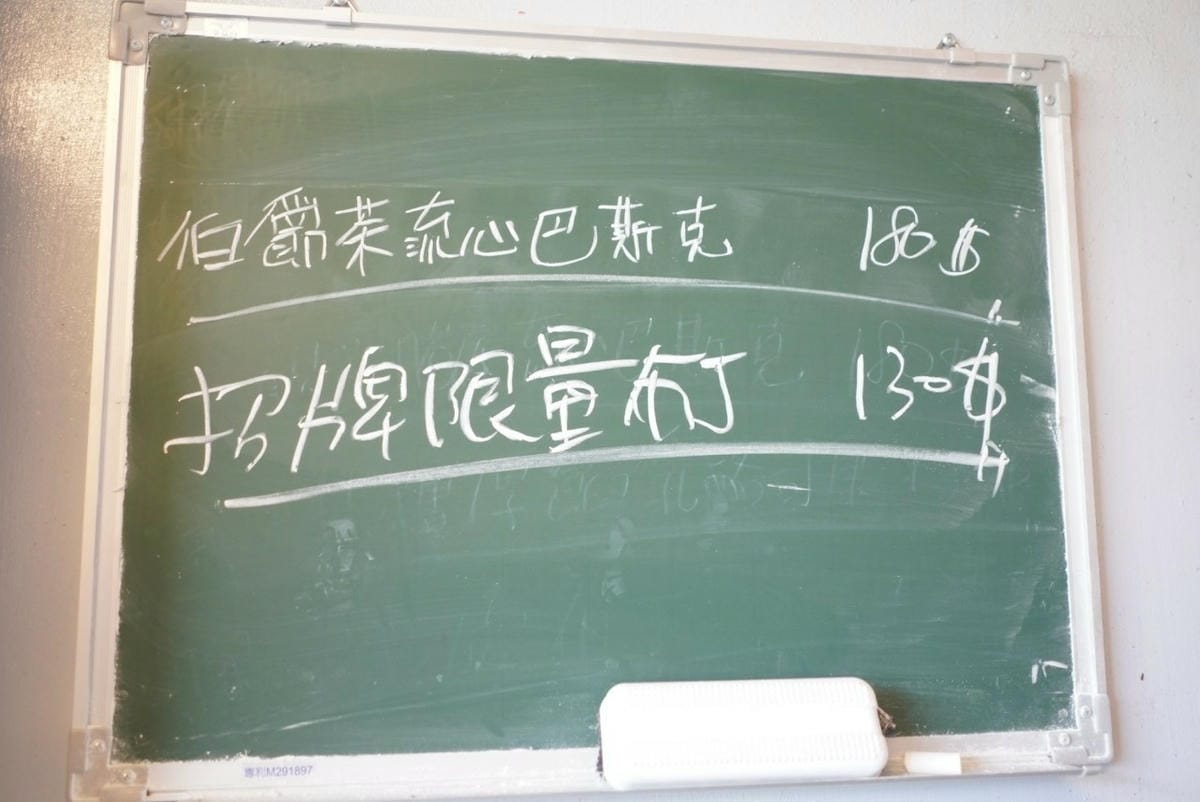 伯爵茶流心巴斯克 180$
招牌限量布丁 130$
專利M291897